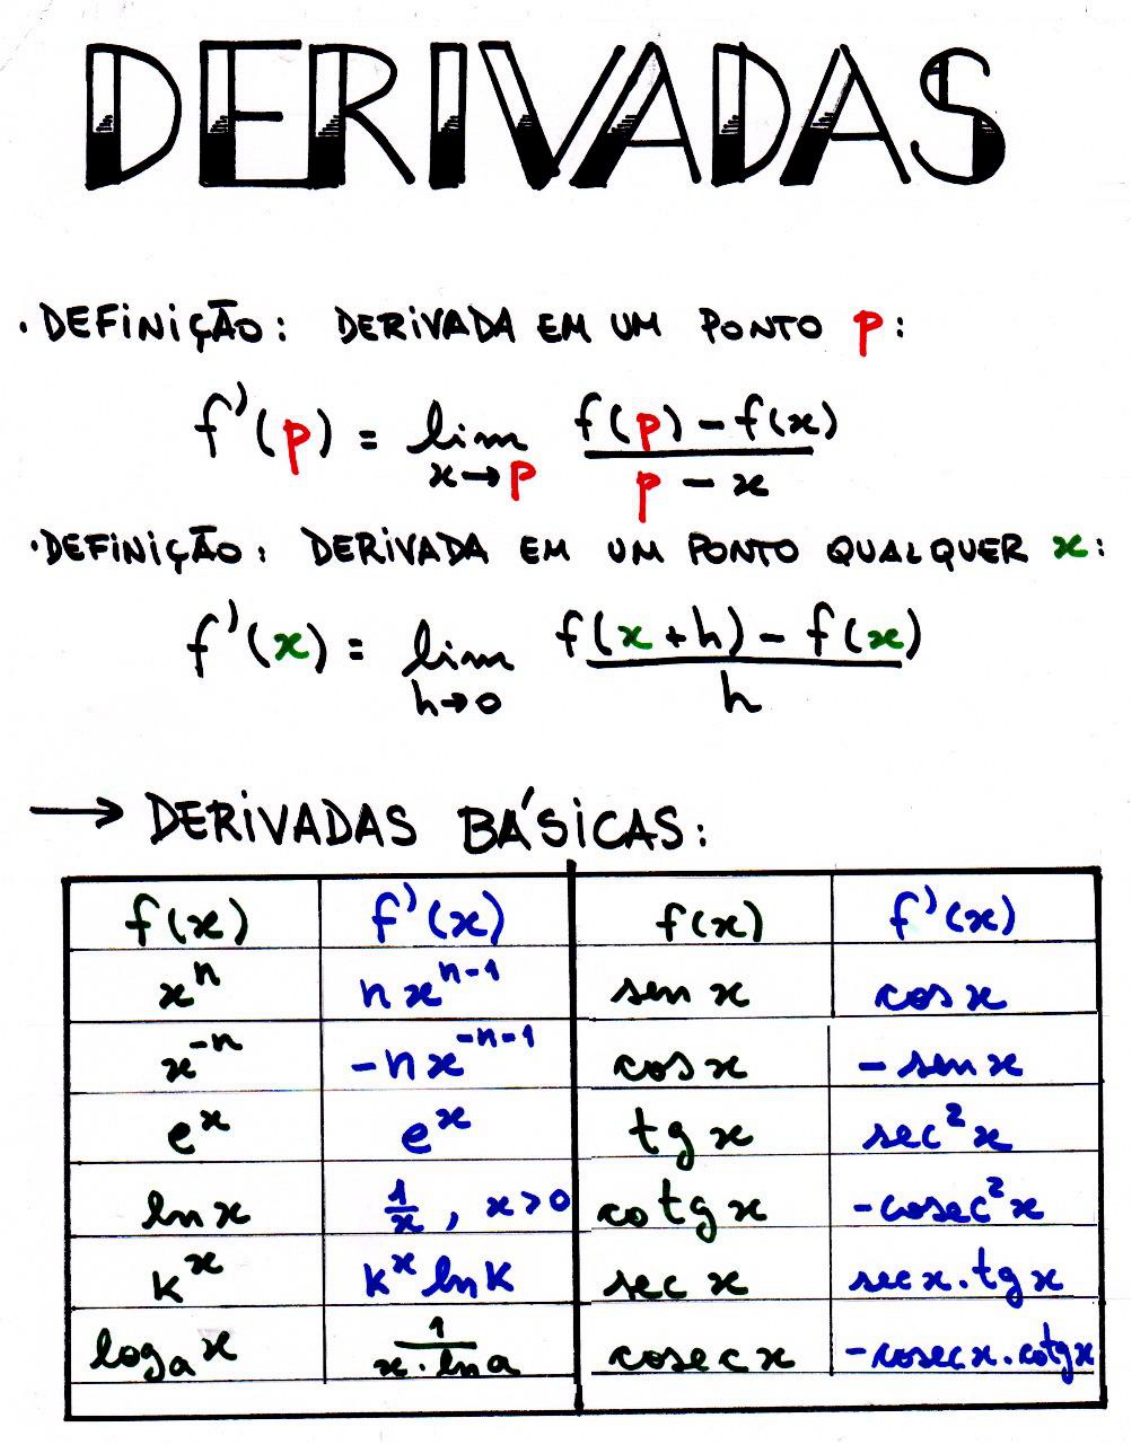 DERIVADAS
· DEFINIÇÃO: DERIVADA EM UM PONTO p:
f'(p) = lim x→p (f(p) - f(x)) / (p - x)
· DEFINIÇÃO: DERIVADA EM UM PONTO QUALQUER x:
f'(x) = lim h→0 (f(x+h) - f(x)) / h
→ DERIVADAS BÁSICAS:
f(x) f'(x) f(x) f'(x)
x^n nx^(n-1) sen x cos x
x^(-n) -nx^(-n-1) cos x - sen x
e^x e^x tg x sec² x
ln x 1/x , x>0 cotg x - cosec² x
k^x k^x ln k sec x sec x . tg x
log_a x 1/(x . ln a) cosec x - cosec x . cotg x